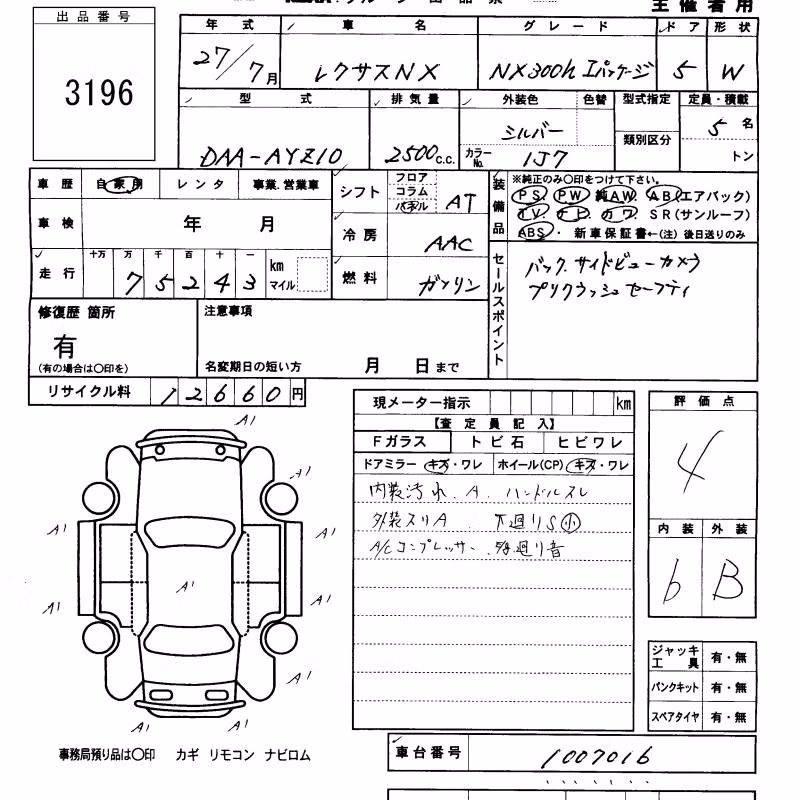 主催者用
出品番号
3196
年式 車名 グレード ドア 形状
27/7月 レクサスNX NX300h Iパッケージ 5 W
型式 排気量 外装色 色替 型式指定 定員・積載
DAA-AYZ10 2500c.c. シルバー 類別区分 5名
カラーNo. 1J7 トン
車歴 自家用 レンタ 事業.営業車
シフト フロア コラム パネル AT
車検 年 月
冷房 AAC
走行 十万 万 千 百 十 一
75243 km マイル
燃料 ガソリン
装備品 ※純正のみ〇印をつけて下さい。
PS. PW. 純AW. AB(エアバック)
TV. ナビ. カワ. SR(サンルーフ)
ABS. 新車保証書←(注) 後日送りのみ
セールスポイント
バック.サイドビューカメラ
プリクラッシュセーフティ
修復歴 箇所
有
(有の場合は〇印を)
注意事項
名変期日の短い方 月 日まで
リサイクル料 12660円
現メーター指示 km
【査定員記入】
Fガラス トビ石 ヒビワレ
ドアミラー キズ・ワレ ホイール(CP) キズ・ワレ
内装汚れ.A. ハンドルスレ
外装スリA 下廻りS小
A/Cコンプレッサー
廻り音
評価点
4
内装 外装
b B
ジャッキ工具 有・無
パンクキット 有・無
スペアタイヤ 有・無
A1
A1
A1
A1
A1
A1
A1
A1
A1
A1
A1
事務局預り品は〇印 カギ リモコン ナビロム
車台番号 1007016